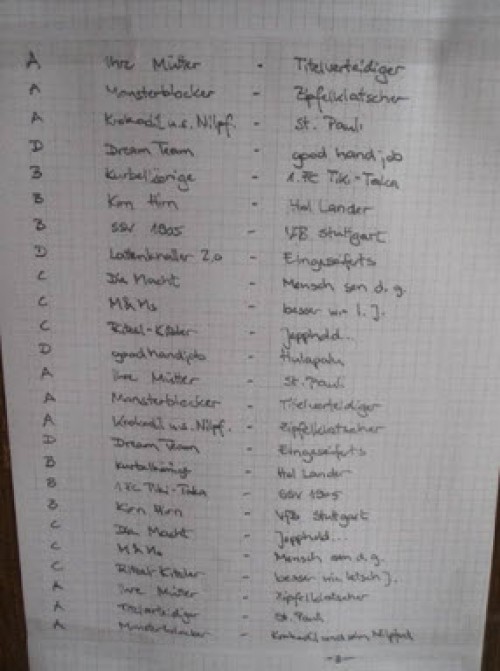 A Ihre Mütter - Titelverteidiger
A Monsterblocker - Zipfelklatscher
A Krokodil u.s. Nilpf. - St. Pauli
D Dream Team - good handjob
B Kurbelkönige - 1. FC Tiki-Taka
B Kirn Hirn - Hol Lander
B SSV 1905 - VfB Stuttgart
D Lattenknaller 2,0 - Eingeseifets
C Die Macht - Mensch sen d. g.
C M&Ms - besser wie l. J.
C Ritsel-Kitzler - Jepphold...
D good handjob - Hulapalu
A Ihre Mütter - St. Pauli
A Monsterblocker - Titelverteidiger
A Krokodil u.s. Nilpf. - Zipfelklatscher
D Dream Team - Eingeseifets
B - Hol Lander
B 1 FC Tiki-Taka - SSV 1905
B Kirn Hirn - VfB Stuttgart
C Die Macht - Jepphold...
C M&Ms - Mensch sen d. g.
C Ritsel-Kitzler - besser wie letsch J.
A Ihre Mütter - Zipfelklatscher
A Titelverteidiger - St. Pauli
A Monsterblocker - Krokodil und sein Nilpferd